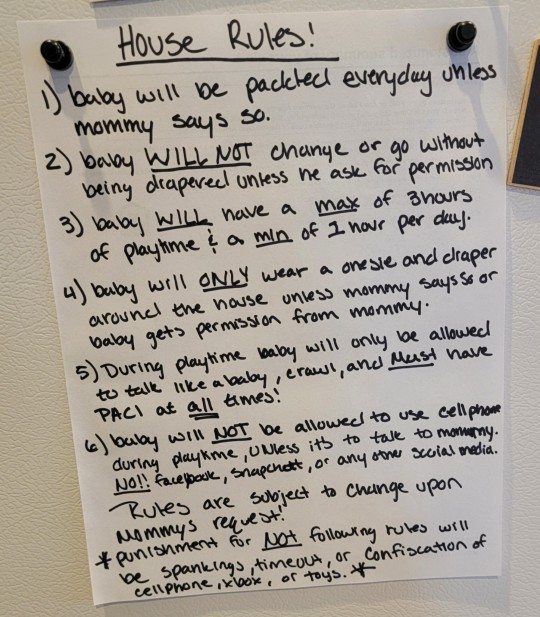 House Rules!
1) baby will be padded everyday unless
mommy says so.
2) baby WILL NOT change or go without
being diapered unless he ask for permission
3) baby WILL have a max of 3hours
of playtime & a min of 1 hour per day.
4) baby will ONLY wear a onesie and diaper
around the house unless mommy says so or
baby gets permission from mommy.
5) During playtime baby will only be allowed
to talk like a baby, crawl, and Must have
PACI at all times!
6) baby will NOT be allowed to use cellphone
during playtime, UNless its to talk to mommy.
NO!! facebook, snapchatt, or any other social media.
Rules are subject to change upon
Mommys request!
* punishment for Not following rules will
be spankings, timeout, or confiscation of
cellphone, xbox, or toys. *